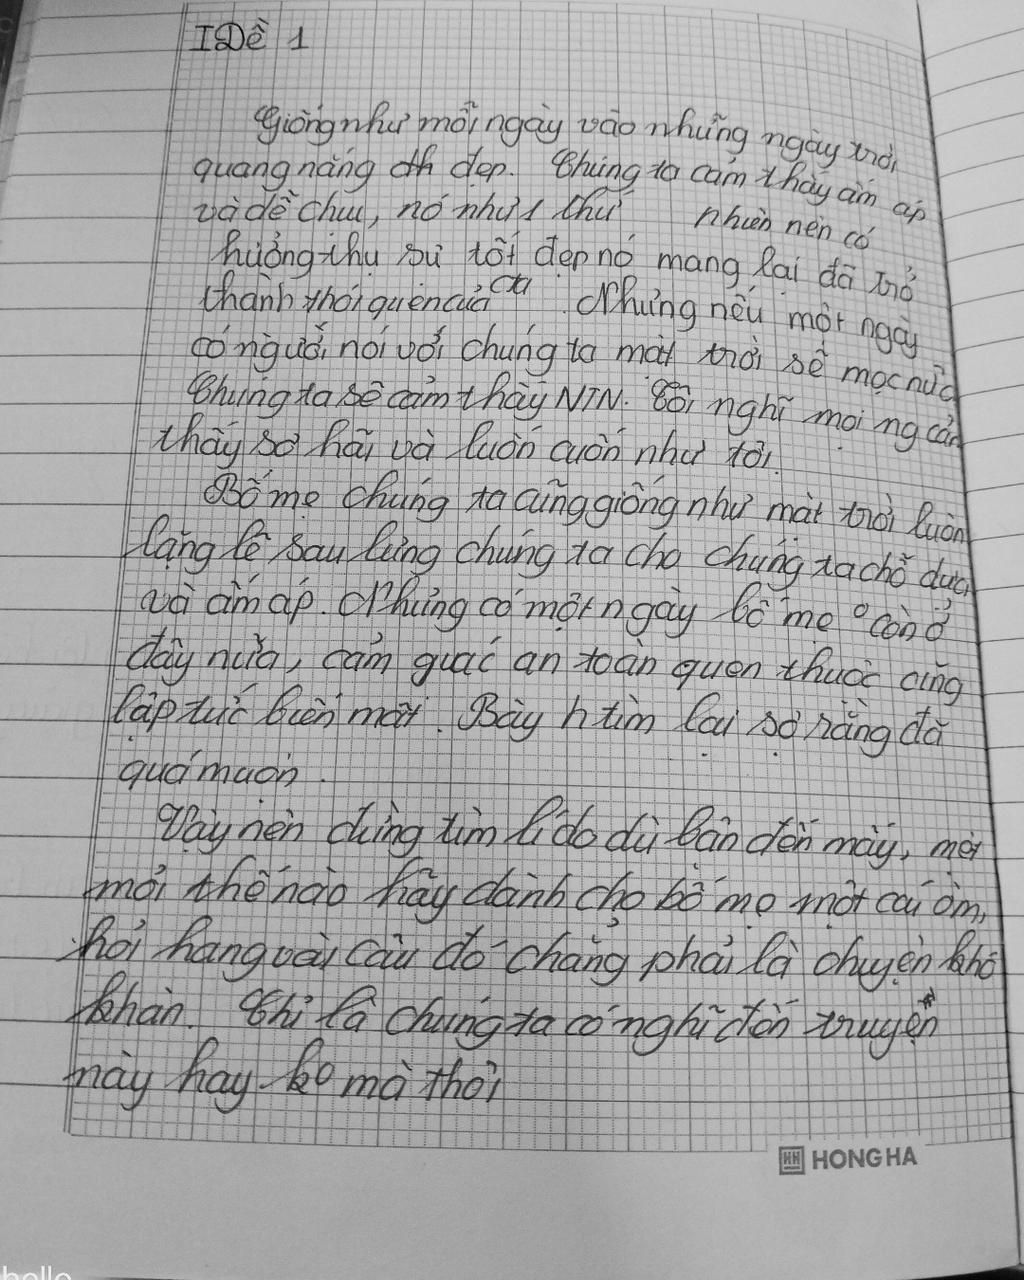 I Đề 1
Giống như mỗi ngày vào những ngày trời
quang nắng đẹp. Chúng ta cảm thấy ấm áp
và dễ chịu, nó như 1 thứ nhiên nên có
hưởng thụ sự tốt đẹp nó mang lại đã trở
thành thói quen của cta. Nhưng nếu một ngày
có người nói với chúng ta mặt trời sẽ mọc nữa
Chúng ta sẽ cảm thấy NTN. Tôi nghĩ mọi ng cảm
thấy sợ hãi và luôn cuốn như tôi.
Bố mẹ chúng ta cũng giống như mặt trời luôn
lặng lẽ sau lưng chúng ta cho chúng ta chỗ dựa
và ấm áp. Nhưng có một ngày bố mẹ o còn ở
đây nữa, cảm giác an toàn quen thuộc cũng
lập tức biến mất. Bây h tìm lại sợ rằng đã
quá muộn.
Vậy nên đừng tìm lí do dù bận đến mấy, mệt
mỏi thế nào hãy dành cho bố mẹ một cái ôm,
hỏi hang vài câu đó chẳng phải là chuyện khó
khăn. Chỉ là chúng ta có nghĩ đến truyện
này hay ko mà thôi
HONG HA
hello